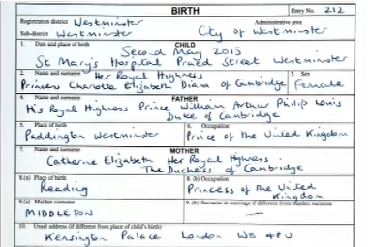 BIRTH Entry No. 212
Registration district Westminster Administrative area
Sub-district Westminster City of Westminster
1. Date and place of birth CHILD
Second May 2015
St Mary's Hospital Praed Street Westminster
2. Name and surname Her Royal Highness 3. Sex
Princess Charlotte Elizabeth Diana of Cambridge Female
4. Name and surname FATHER
His Royal Highness Prince William Arthur Philip Louis
Duke of Cambridge
5. Place of birth 6. Occupation
Paddington Westminster Prince of the United Kingdom
7. Name and surname MOTHER
Catherine Elizabeth Her Royal Highness
The Duchess of Cambridge
8.(a) Place of birth 8.(b) Occupation
Reading Princess of the United
Kingdom
9.(a) Maiden surname 9.(b) Surname at marriage if different from maiden surname
MIDDLETON
10. Usual address (if different from place of child's birth)
Kensington Palace London W8 4PU